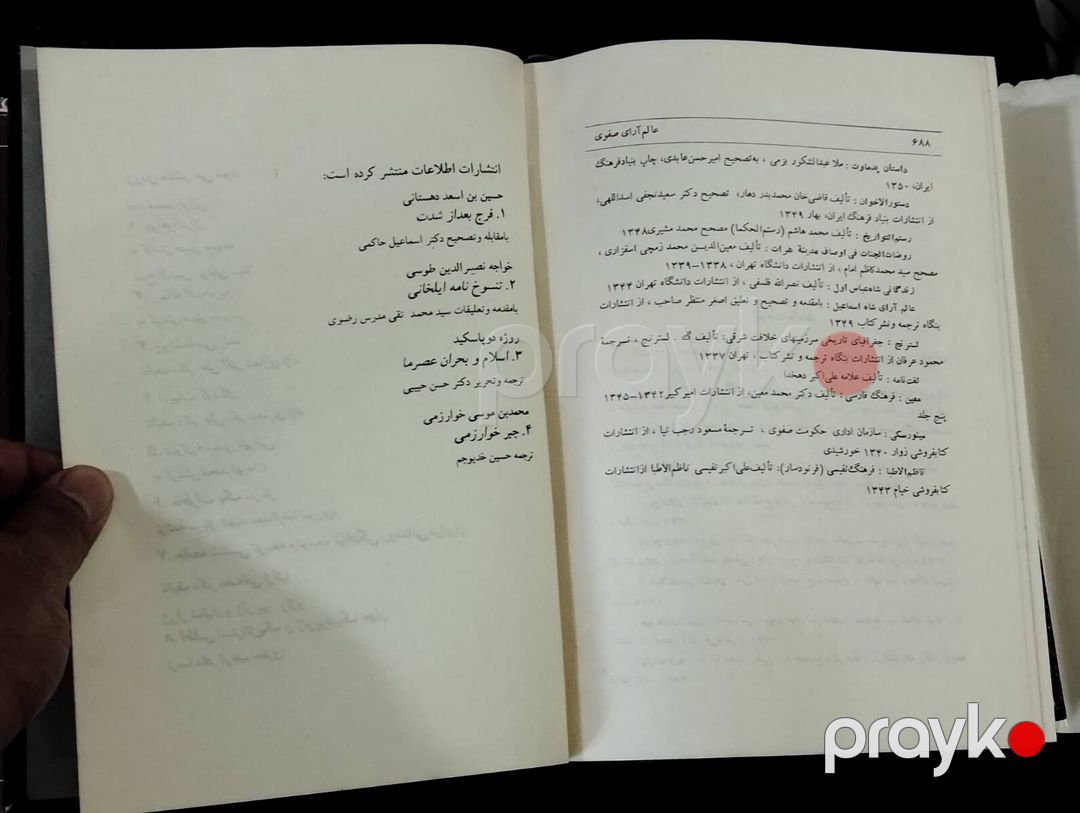 ۶۸۸
عالم آرای صفوی
داستان پدماوت : ملا عبدالشکور بزمی ، به تصحیح امیرحسن عابدی، چاپ بنیاد فرهنگ
ایران، ۱۳۵۰
دستورالاخوان : تألیف قاضی‌خان محمد بدر دهار، تصحیح دکتر سعید نجفی اسداللهی،
از انتشارات بنیاد فرهنگ ایران، بهار ۱۳۴۹
رستم‌التواریخ : تألیف محمد هاشم (رستم‌الحکما) مصحح محمد مشیری ۱۳۴۸
روضات‌الجنات فی اوصاف مدینة هرات : تألیف معین‌الدیـن محمد زمچی اسفزاری ،
مصحح سید محمدکاظم امام ، از انتشارات دانشگاه تهران ، ۱۳۳۸–۱۳۳۹
زندگانی شاه‌عباس اول : تألیف نصرالله فلسفی ، از انتشارات دانشگاه تهران ۱۳۴۴
عالم آرای شاه اسماعیل : بامقدمه و تصحیح و تعلیق اصغر منتظر صاحب ، از انتشارات
بنگاه ترجمه و نشر کتاب ۱۳۴۹
لسترنج : جغرافیای تاریخی سرزمینهای خلافت شرقی: تألیف گ . لسترنج ، تـرجمهٔ
محمود عرفان از انتشارات بنگاه ترجمه و نشر کتاب ، تهران ۱۳۳۷
لغت‌نامه : تألیف علامه علی‌اکبر دهخدا
معین : فرهنگ فارسی : تألیف دکتر محمد معین، از انتشارات امیرکبیر ۱۳۴۲–۱۳۴۵
پنج جلد
مینورسکی : سازمان اداری حکومت صفوی ، تـرجمهٔ مسعود رجب نیا ، از انتشارات
کتابفروشی زوار ۱۳۴۰ خورشیدی
ناظم‌الاطبا : فرهنگ نفیسی (فرنودسار): تألیف علی‌اکبر نفیسی ناظم‌الاطبا از انتشارات
کتابفروشی خیام ۱۳۴۳
انتشارات اطلاعات منتشر کرده است:
حسین بن اسعد دهستانی
۱. فرج بعداز شدت
بامقابله و تصحیح دکتر اسماعیل حاکمی
خواجه نصیرالدین طوسی
۲. تنسوخ نامه ایلخانی
بامقدمه و تعلیقات سید محمد تقی مدرس رضوی
روژه دو پاسکیه
۳. اسلام و بحران عصر ما
ترجمه و تحریر دکتر حسن حبیبی
محمدبن موسی خوارزمی
۴. جبر خوارزمی
ترجمه حسین خدیوجم
prayk
prayk